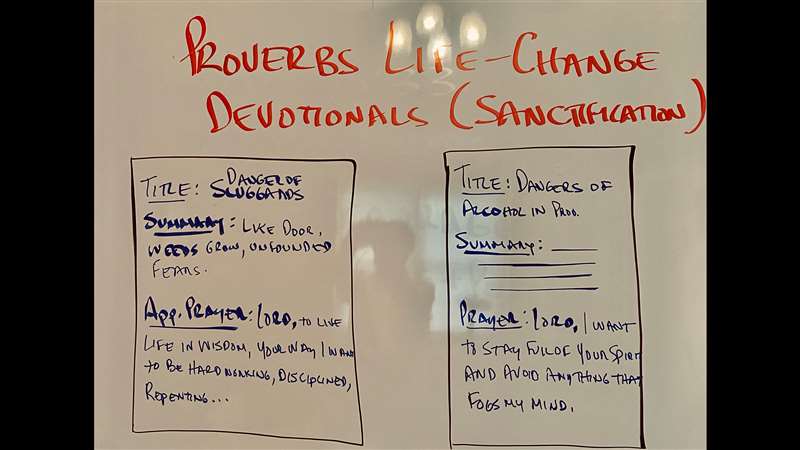 PROVERBS LIFE-CHANGE
DEVOTIONALS (SANCTIFICATION)
TITLE: DANGER OF
SLUGGARDS
SUMMARY: LIKE DOOR,
WEEDS GROW, UNFOUNDED
FEARS.
APP. PRAYER: LORD, TO LIVE
LIFE IN WISDOM, YOUR WAY I WANT
TO BE HARDWORKING, DISCIPLINED,
REPENTING...
TITLE: DANGERS OF
ALCOHOL IN PROV.
SUMMARY:
PRAYER: LORD, I WANT
TO STAY FULL OF YOUR SPIRIT
AND AVOID ANYTHING THAT
FOGS MY MIND.